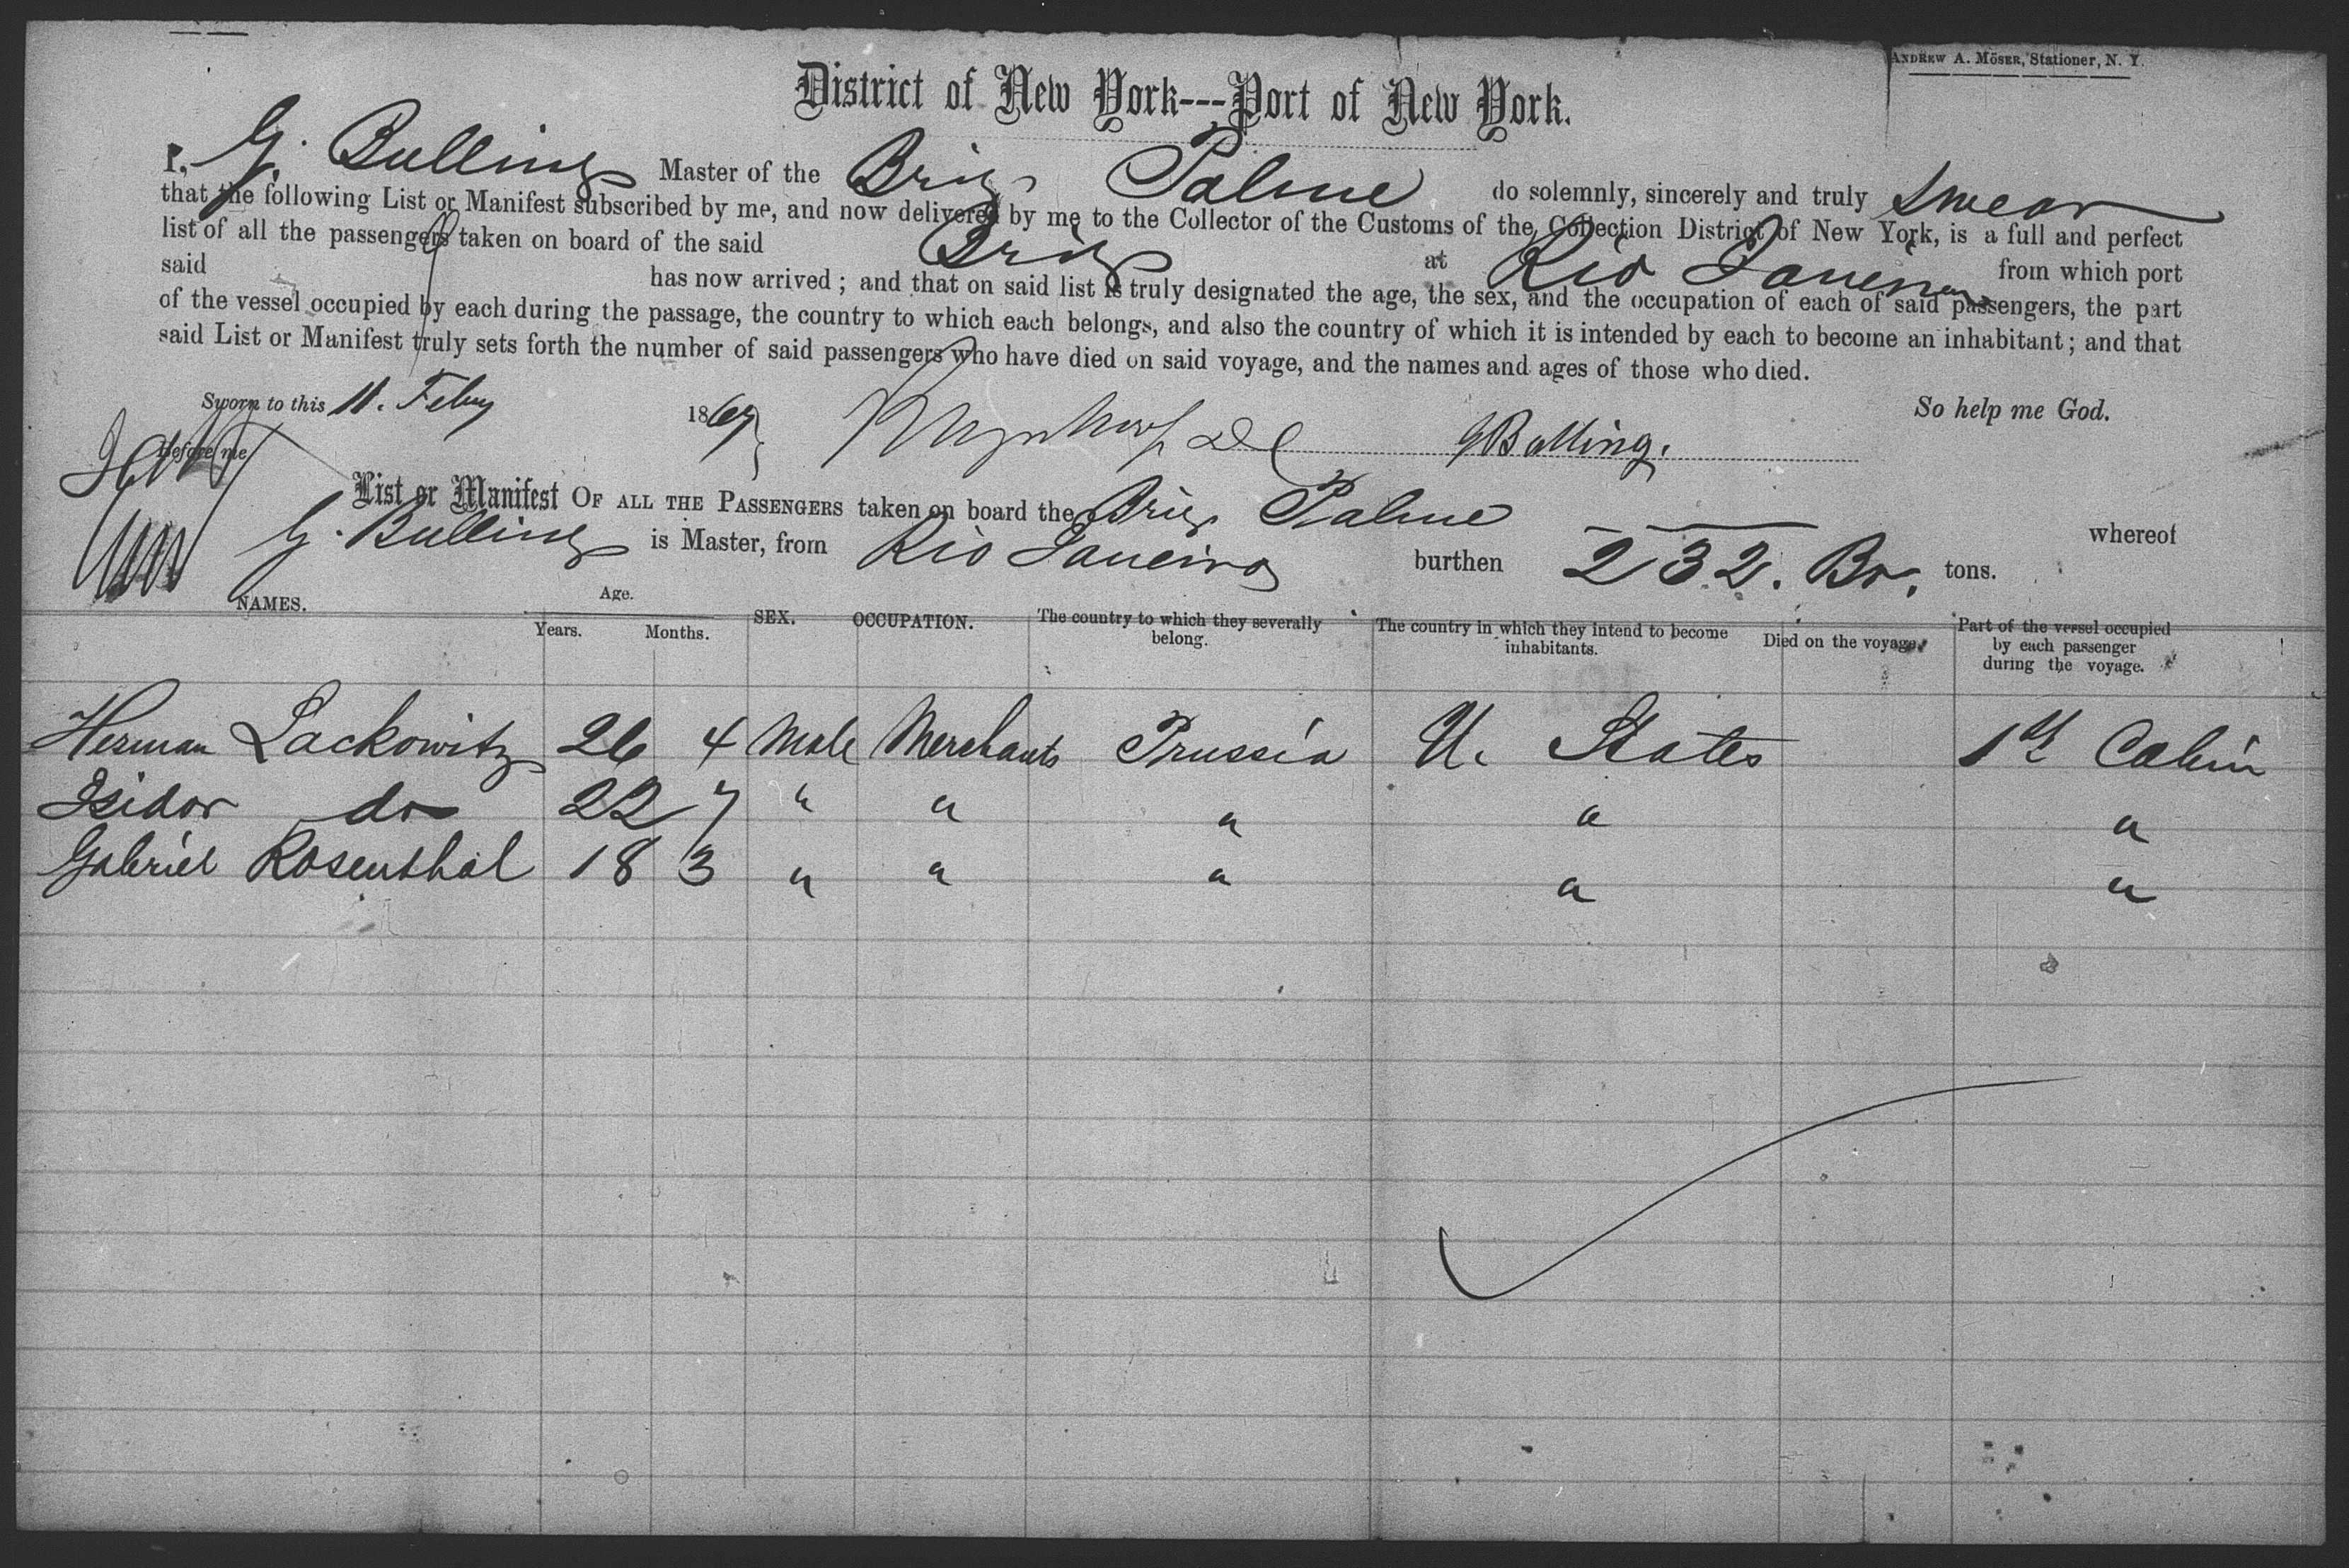 ANDREW A. MÖSER, Stationer, N. Y.
District of New York---Port of New York.
I, G. Bulling Master of the Brig Palme do solemnly, sincerely and truly swear
that the following List or Manifest subscribed by me, and now delivered by me to the Collector of the Customs of the Collection District of New York, is a full and perfect
list of all the passengers taken on board of the said Brig at Rio Janeiro from which port
said has now arrived; and that on said list is truly designated the age, the sex, and the occupation of each of said passengers, the part
of the vessel occupied by each during the passage, the country to which each belongs, and also the country of which it is intended by each to become an inhabitant; and that
said List or Manifest truly sets forth the number of said passengers who have died on said voyage, and the names and ages of those who died.
Sworn to this 11. Feby 1867 So help me God.
Before me G Bulling.
List or Manifest OF ALL THE PASSENGERS taken on board the Brig Palme whereof
G. Bulling is Master, from Rio Janeiro burthen 232. Br. tons.
NAMES. Age. Years. Months. SEX. OCCUPATION. The country to which they severally belong. The country in which they intend to become inhabitants. Died on the voyage. Part of the vessel occupied by each passenger during the voyage.
Herman Lackowitz 26 4 Male Merchants Prussia U. States 1st Cabin
Isidor do 22 7 " " " " "
Gabriel Rosenthal 18 3 " " " " "